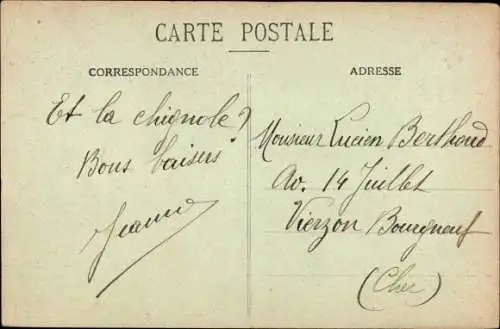 CARTE POSTALE
CORRESPONDANCE
ADRESSE
Et la chignole ?
Bons baisers
Jeanne
Monsieur Lucien Berthoud
Av. 14 Juillet
Vierzon Bourgneuf
(Cher)